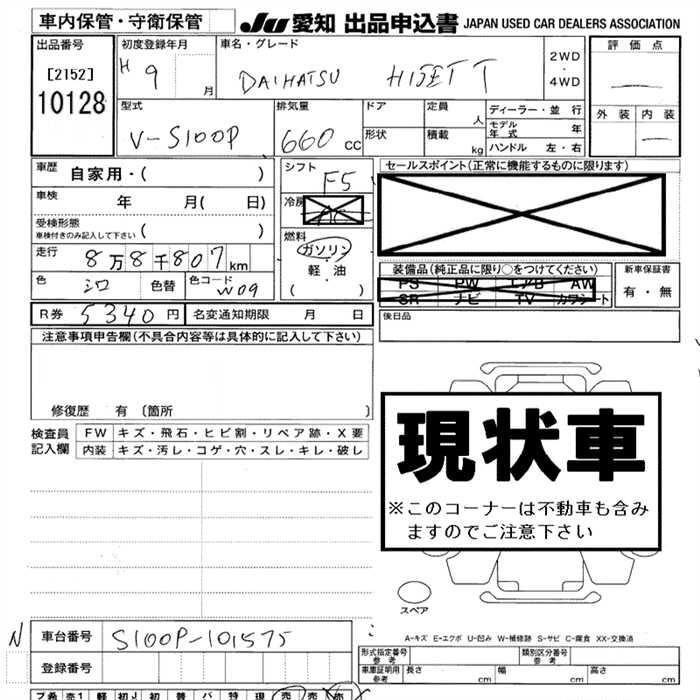 車内保管・守衛保管
JU 愛知 出品申込書 JAPAN USED CAR DEALERS ASSOCIATION
出品番号
[2152]
10128
初度登録年月
H 9 月
車名・グレード
DAIHATSU HIJET T
2WD
・
4WD
評価点
外装 内装
型式
V-S100P
排気量
660 cc
ドア
形状
定員 人
積載 kg
ディーラー・並行
モデル年式 年
ハンドル 左・右
車歴 自家用・( )
車検 年 月( 日)
受検形態
車検付きのみ記入して下さい ( )
走行 8万8千807km
色 シロ 色替 色コード W09
シフト
F5
冷房
燃料
ガソリン
軽・油
( ・ )
セールスポイント(正常に機能するものに限ります)
装備品(純正品に限り○をつけてください)
PS PW エアB AW
SR ナビ TV カワシート
新車保証書
有・無
R券 5340 円 名変通知期限 月 日
後日品
注意事項申告欄(不具合内容等は具体的に記入して下さい)
修復歴 有〔箇所 〕
検査員記入欄
FW キズ・飛石・ヒビ割・リペア跡・X要
内装 キズ・汚レ・コゲ・穴・スレ・キレ・破レ
現状車
※このコーナーは不動車も含み
ますのでご注意下さい
スペア
N 車台番号 S100P-101575
登録番号
A-キズ E-エクボ U-凹み W-補修跡 S-サビ C-腐食 XX-交換済
形式指定番号 参考 類別区分番号 参考
車庫証明用 参考 長さ cm 幅 cm 高さ cm